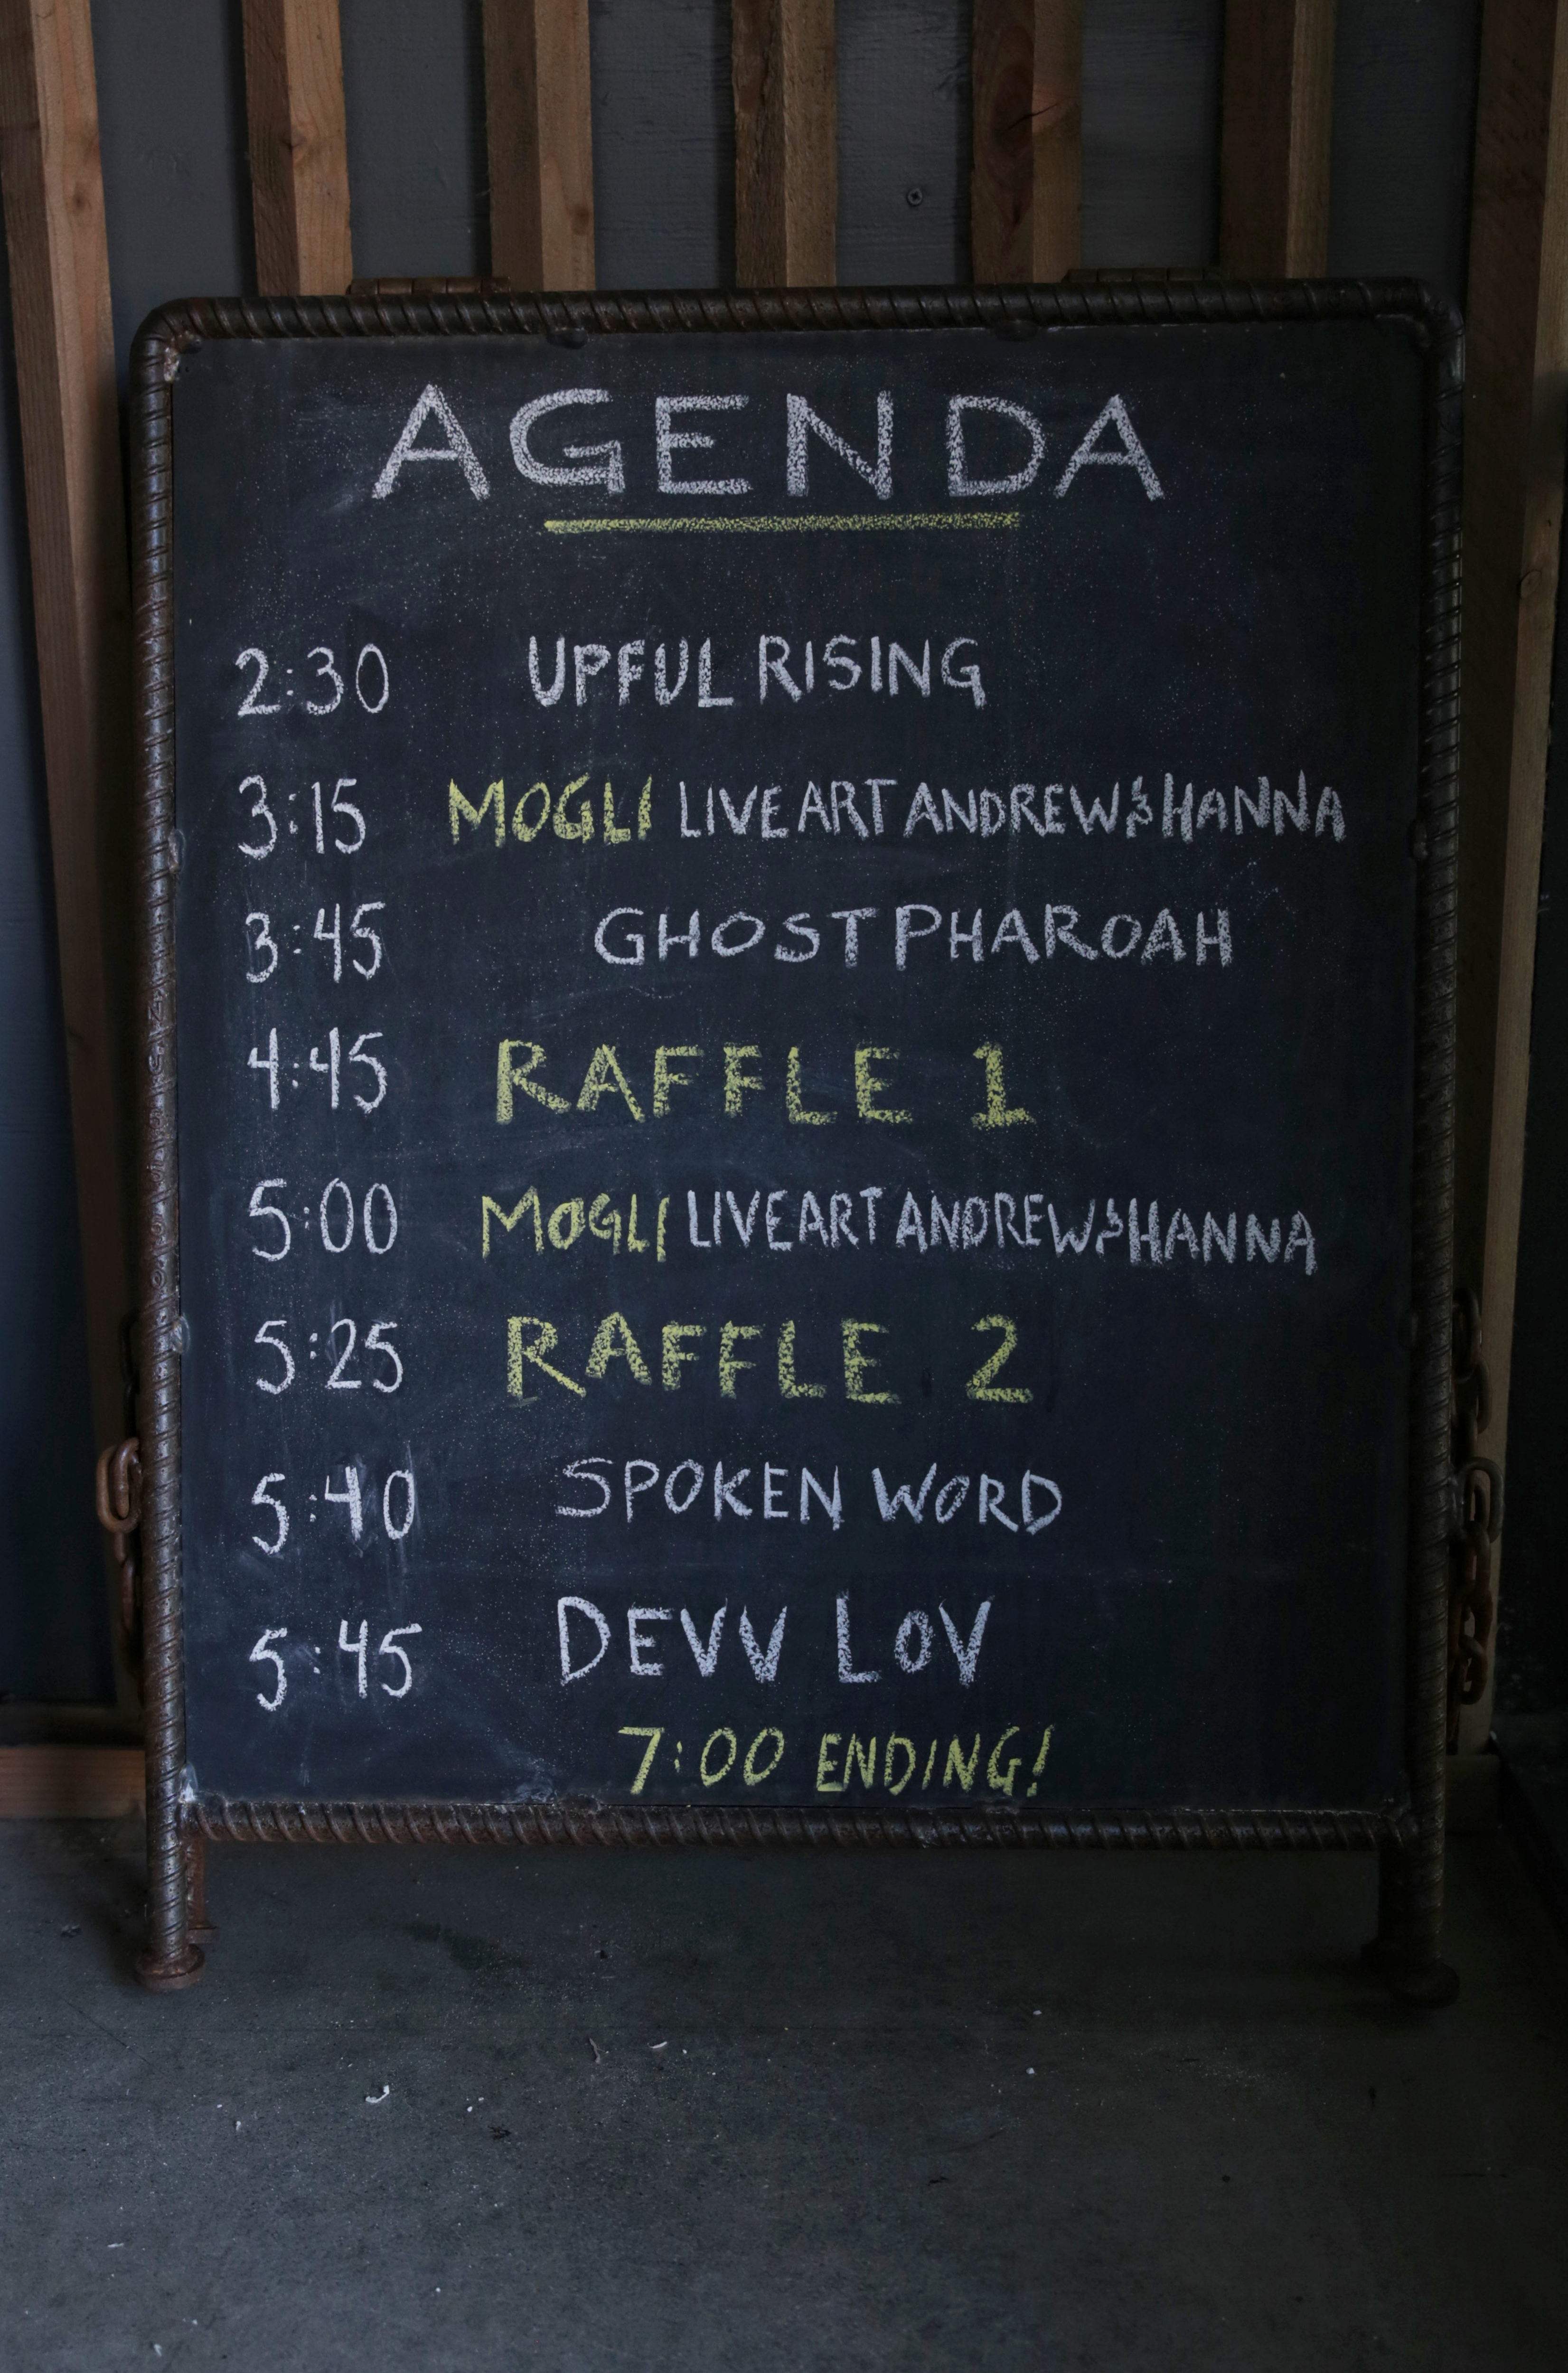 AGENDA
2:30 UPFUL RISING
3:15 MOGLI LIVE ART ANDREW & HANNA
3:45 GHOST PHAROAH
4:45 RAFFLE 1
5:00 MOGLI LIVE ART ANDREW & HANNA
5:25 RAFFLE 2
5:40 SPOKEN WORD
5:45 DEVV LOV
7:00 ENDING!